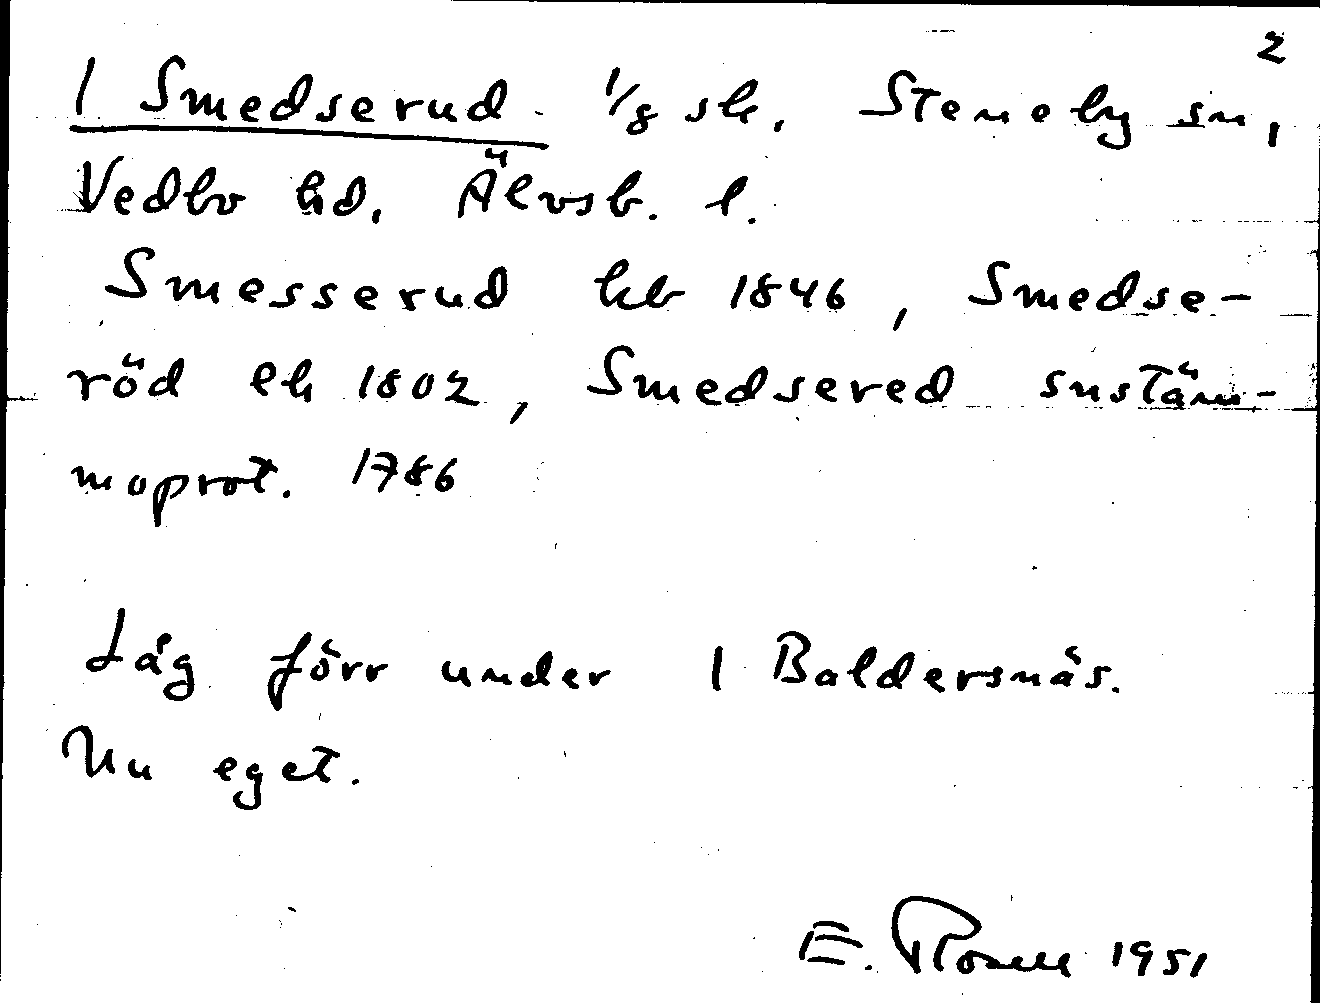 2
1 Smedserud 1/8 sk. Steneby sn,
Vedbo hd. Älvsb. l.
Smesserud kb 1846, Smedse-
röd eh 1802, Smedsered sustäm-
moprot. 1786
Låg förr under 1 Baldersnäs.
Nu eget.
E. Rosell 1951